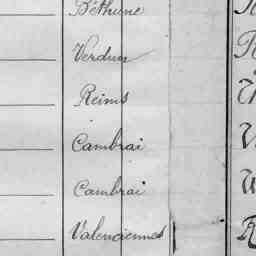 Béthune
Verdun
Reims
Cambrai
Cambrai
Valenciennes